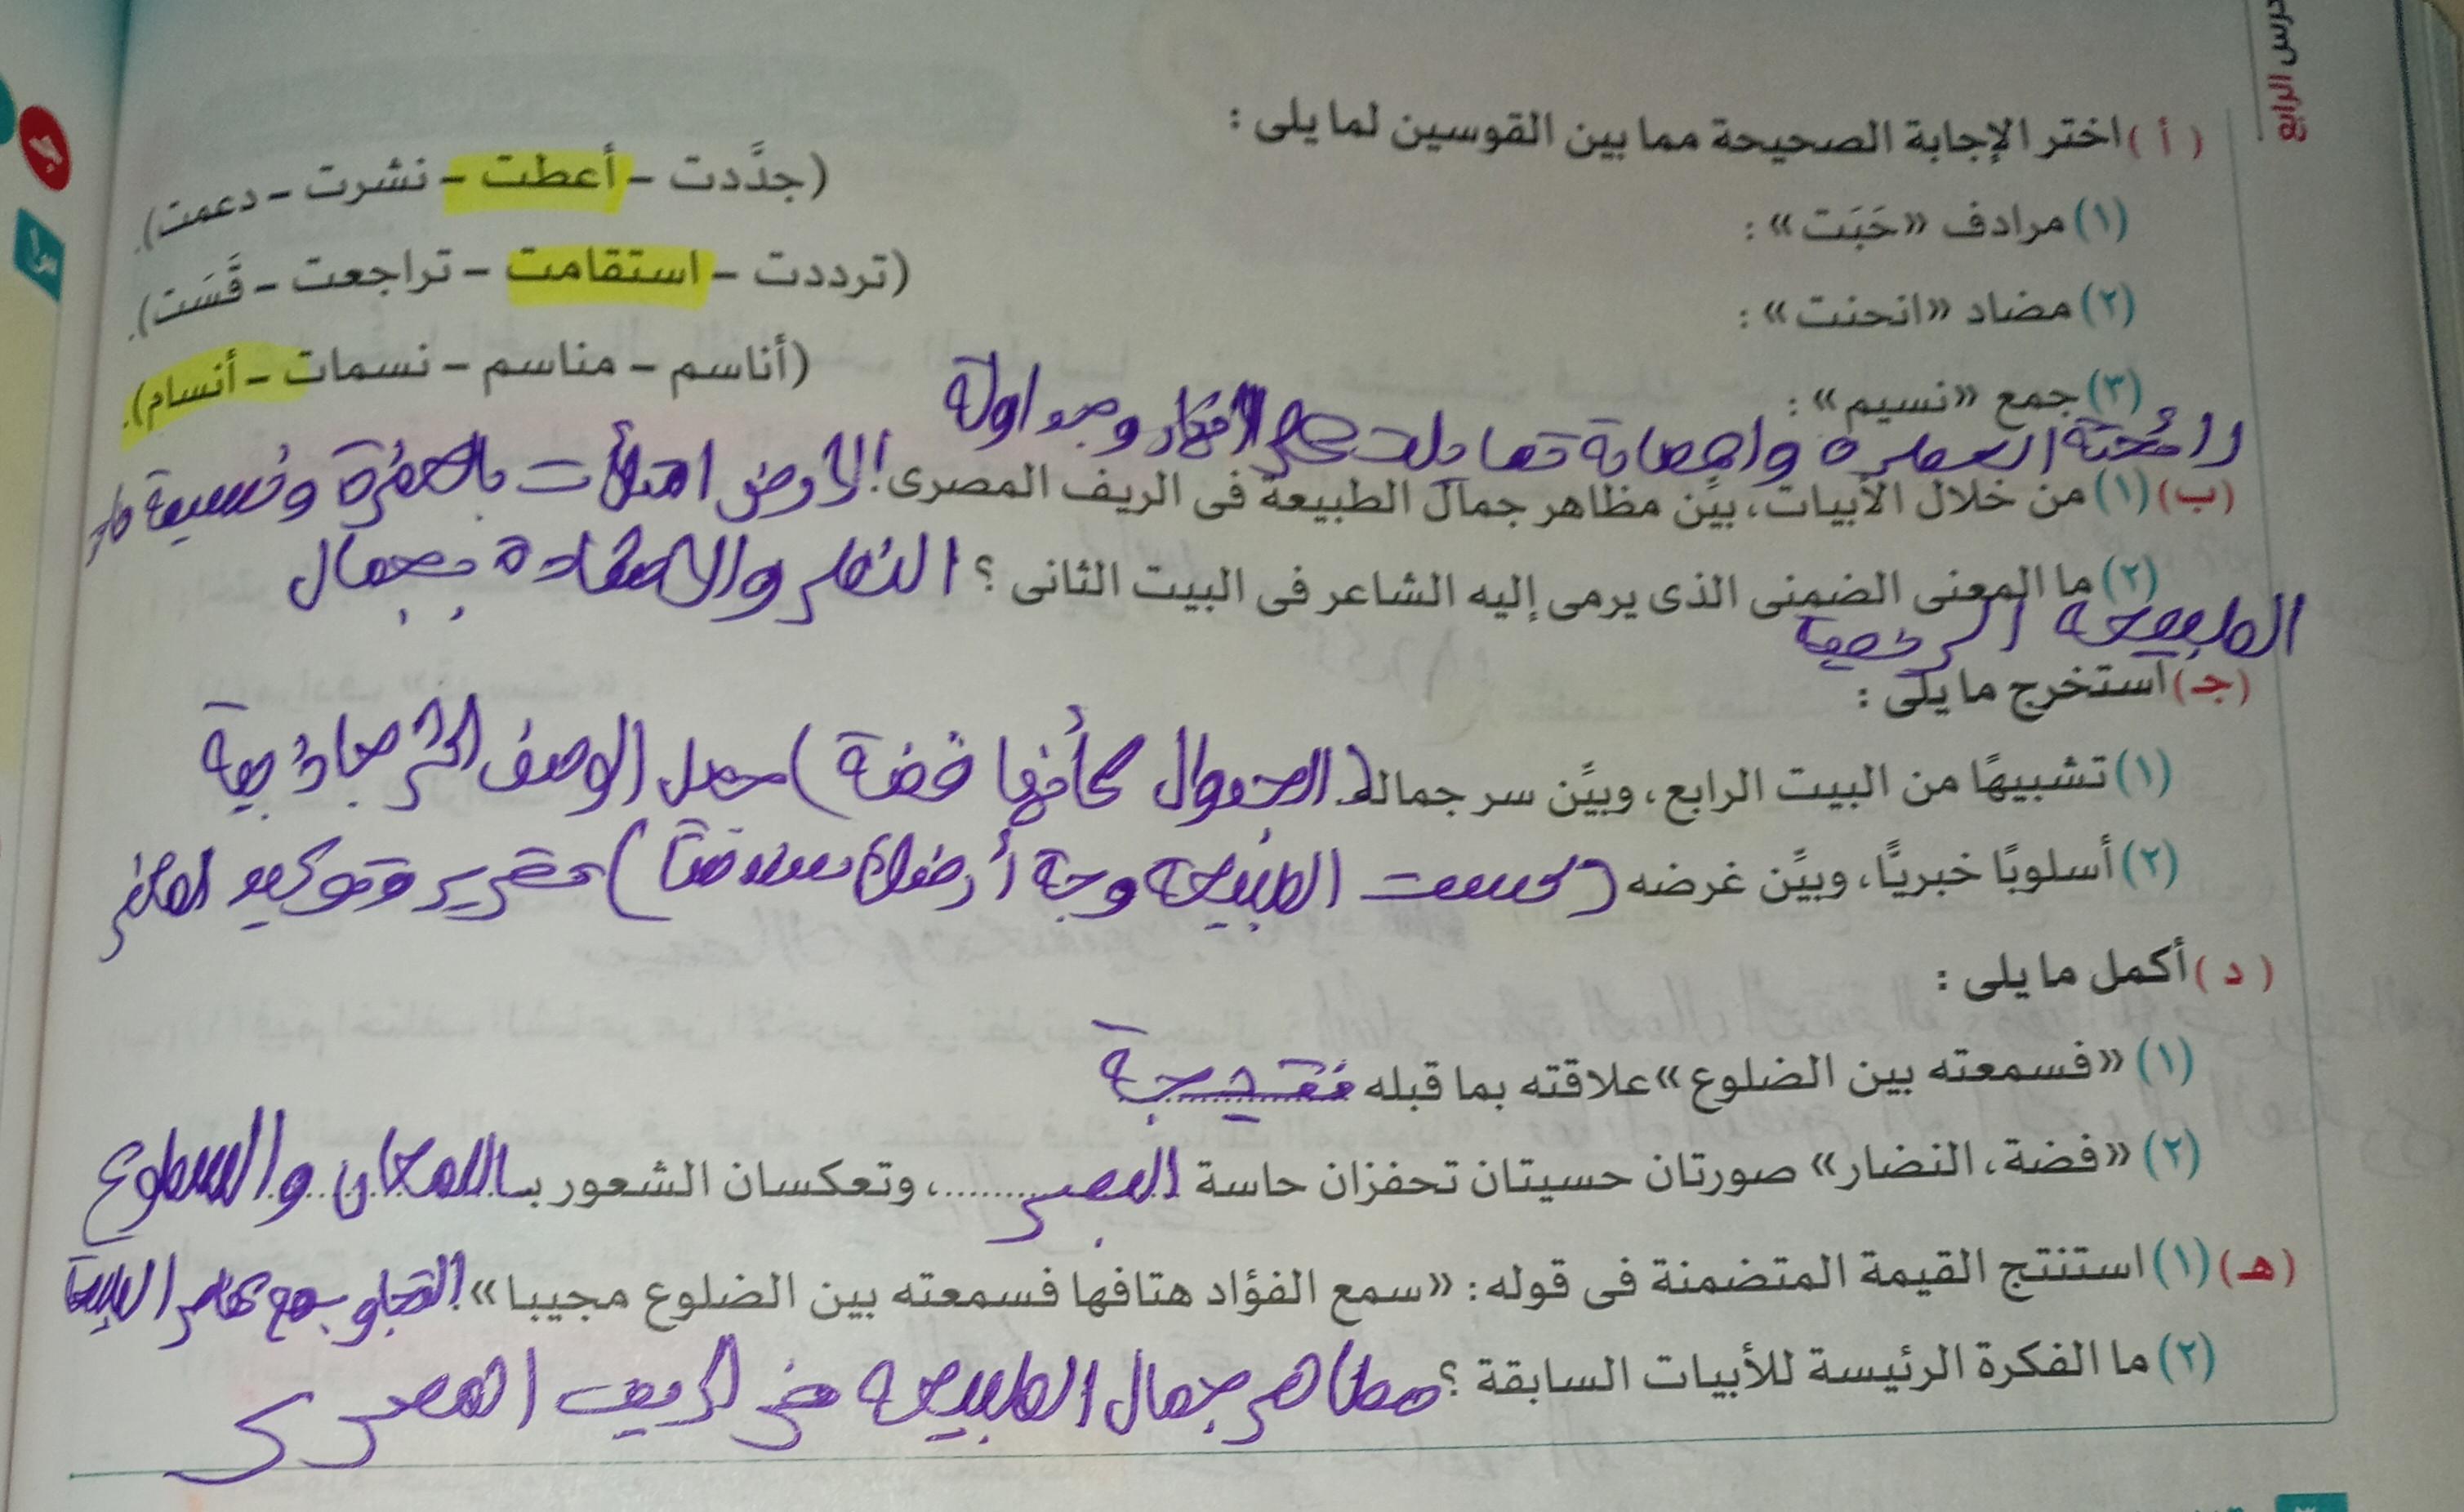 الدرس الرابع
(أ) اختر الإجابة الصحيحة مما بين القوسين لما يلى :
(١) مرادف «حَبَت» : (جدَّدت – أعطت – نشرت – دعمت).
(٢) مضاد «انحنت» : (ترددت – استقامت – تراجعت – قَسَت).
(٣) جمع «نسيم» : (أناسم – مناسم – نسمات – أنسام).
رائحتة العطرة واهصابة تمايلت الافكار وجداولة
(ب) (١) من خلال الأبيات، بيِّن مظاهر جمال الطبيعة فى الريف المصرى! الارض امتلأت بالخضرة ونسيمة
(٢) ما المعنى الضمنى الذى يرمى إليه الشاعر فى البيت الثانى ؟ النظر والاشادة بجمال
الطبيعة الريفية
(جـ) استخرج ما يلى :
(١) تشبيهًا من البيت الرابع، وبيِّن سر جماله. (الجدوال كأنها فضة) جعل الوصف اكثر جاذبية
(٢) أسلوبًا خبريًّا، وبيِّن غرضه (كست الطبيعة وجة أرضك سندسًا) تقرير وتوكيد
(د) أكمل ما يلى :
(١) «فسمعته بين الضلوع» علاقته بما قبله نتيجة
(٢) «فضة، النضار» صورتان حسيتان تحفزان حاسة البصر ........، وتعكسان الشعور بـ اللمعان والسطوع
(هـ) (١) استنتج القيمة المتضمنة فى قوله : «سمع الفؤاد هتافها فسمعته بين الضلوع مجيبا». التجاوب مع الطبيعة
(٢) ما الفكرة الرئيسة للأبيات السابقة ؟ مظاهر جمال الطبيعة فى الريف المصرى